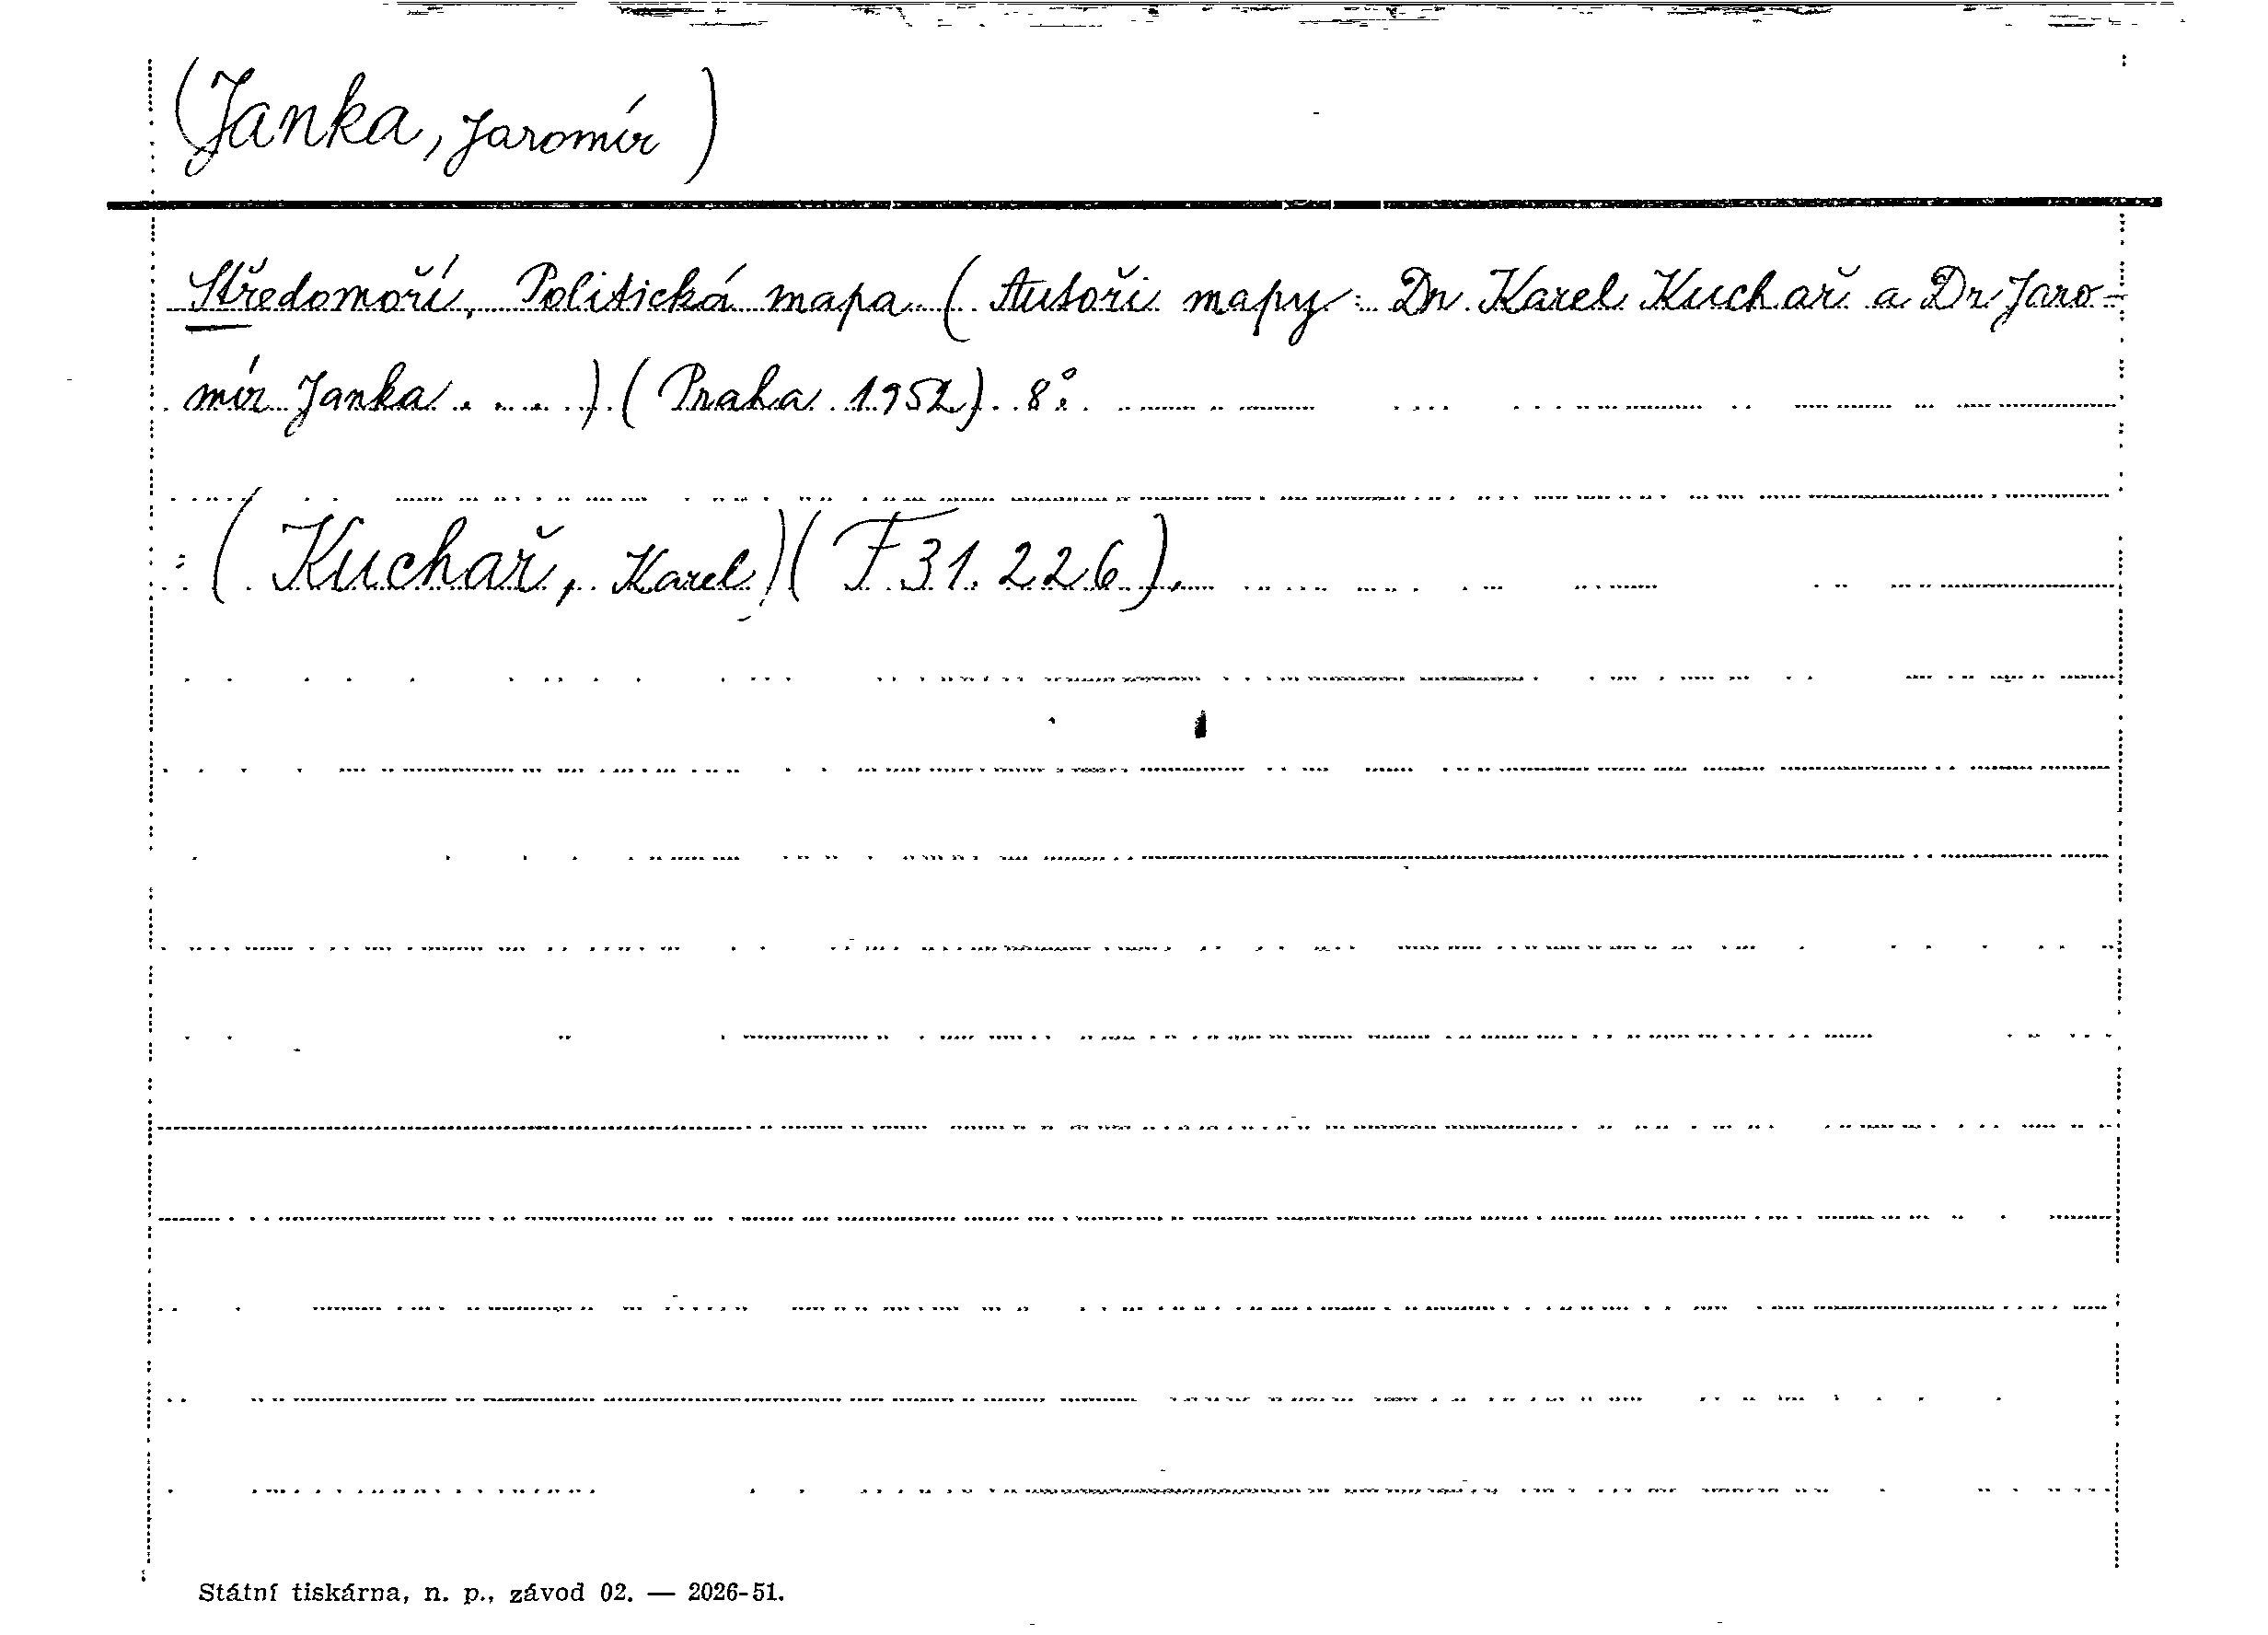 (Janka, Jaromír)
Středomoří, Politická mapa. (Autoři mapy: Dr. Karel Kuchař a Dr Jaro-
mír Janka . . . .) (Praha 1952). 8°.
: (Kuchař, Karel) (F 31.226).
Státní tiskárna, n. p., závod 02. — 2026-51.